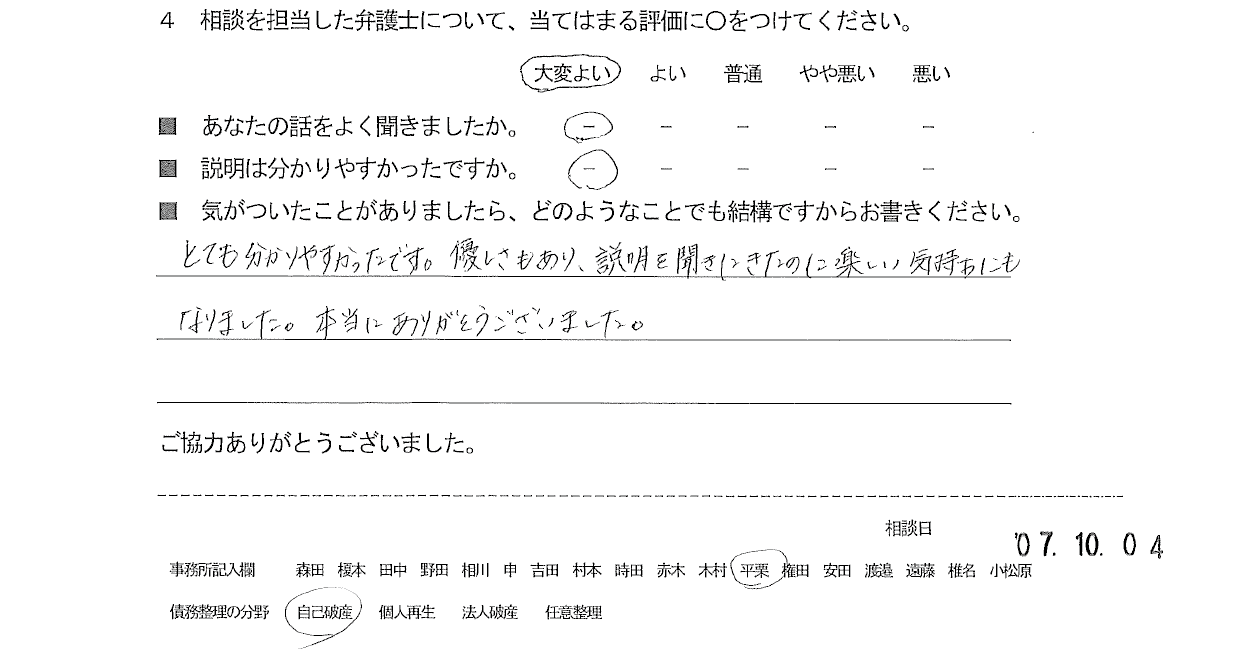 4 相談を担当した弁護士について、当てはまる評価に〇をつけてください。
大変よい よい 普通 やや悪い 悪い
■ あなたの話をよく聞きましたか。 － － － － －
■ 説明は分かりやすかったですか。 － － － － －
■ 気がついたことがありましたら、どのようなことでも結構ですからお書きください。
とても分かりやすかったです。優しさもあり、説明を聞きにきたのに楽しい気持ちにも
なりました。本当にありがとうございました。
ご協力ありがとうございました。
相談日 '07.10.04
事務所記入欄 森田 榎本 田中 野田 相川 申 吉田 村本 時田 赤木 木村 平栗 権田 安田 渡邉 遠藤 椎名 小松原
債務整理の分野 自己破産 個人再生 法人破産 任意整理